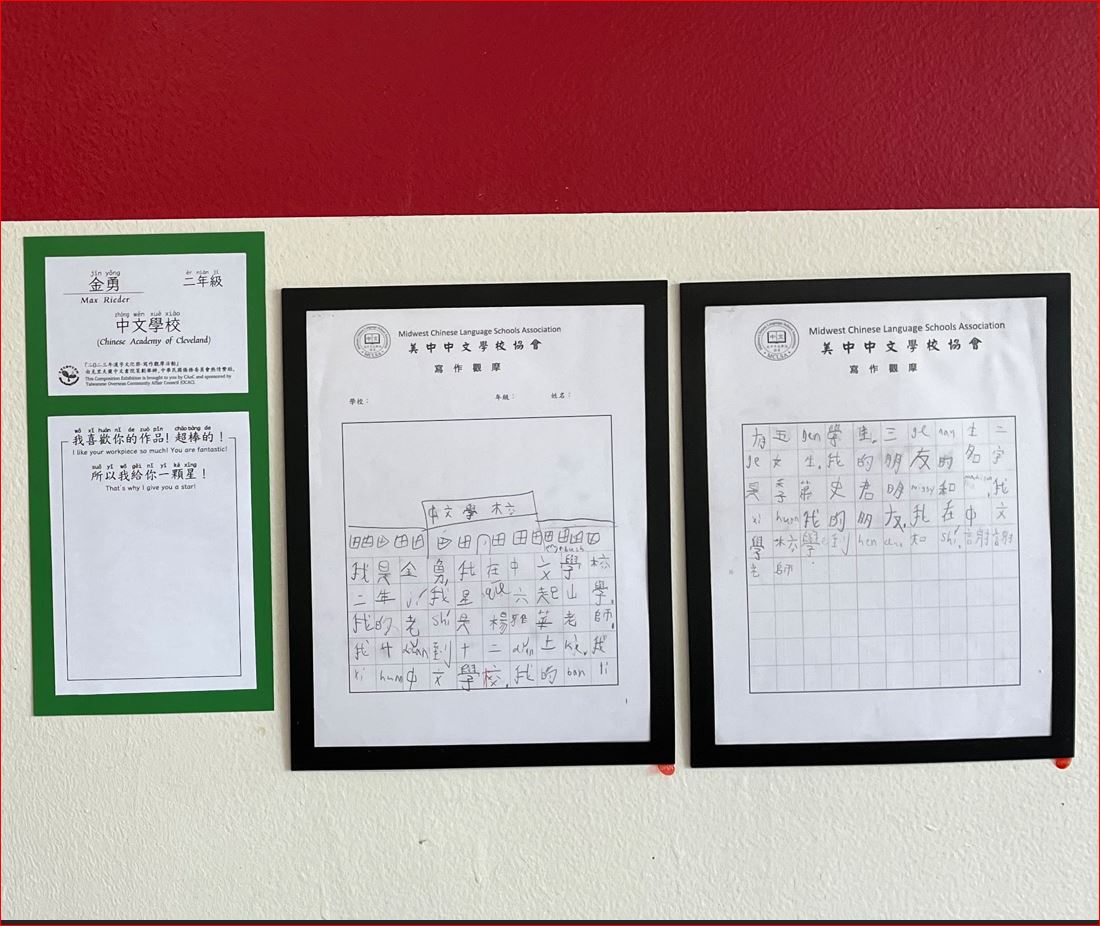 jīn yǒng
金勇
Max Rieder
èr nián jí
二年級
zhōng wén xué xiào
中文學校
(Chinese Academy of Cleveland)
「二〇二三年漢字文化祭:寫作觀摩活動」
由克里夫蘭中文書院策劃舉辦,中華民國僑務委員會熱情贊助。
This Composition Exhibition is brought to you by CAoC and sponsored by
Taiwanese Overseas Community Affair Council (OCAC).
wǒ xǐ huān nǐ de zuò pǐn chāo bàng de
我喜歡你的作品! 超棒的!
I like your workpiece so much! You are fantastic!
suǒ yǐ wǒ gěi nǐ yì kē xīng
所以我給你一顆星!
That's why I give you a star!
Midwest Chinese Language Schools Association
美中中文學校協會
寫作觀摩
學校: 年級: 姓名:
中文學校
我是金勇,我在中文學校
二年jí,我星qí六起山學。
我的老shī是楊雅華老師。
我十diǎn到十二diǎn上kè。我
xi huan中文學校。我的ban li
Midwest Chinese Language Schools Association
美中中文學校協會
寫作觀摩
有五gen學生。三ge nan生二
ge女生。我的朋友的名字
是季第史君明missy和madison。我
xi huan我的朋友。我在中文
學校學到hen duo知shi。謝謝
老師